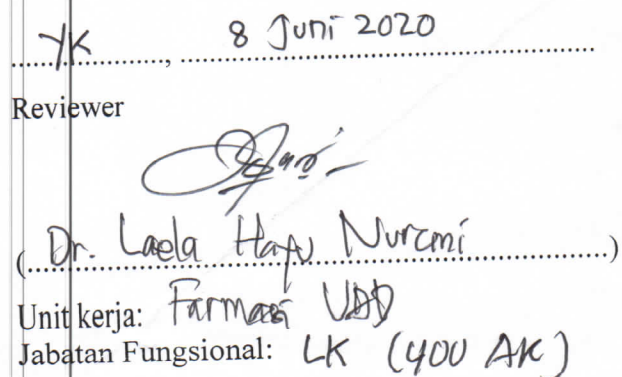 YK, 8 Juni 2020
Reviewer
(Dr. Laela Hayu Nurani)
Unit kerja: Farmasi UAD
Jabatan Fungsional: LK (400 AK)